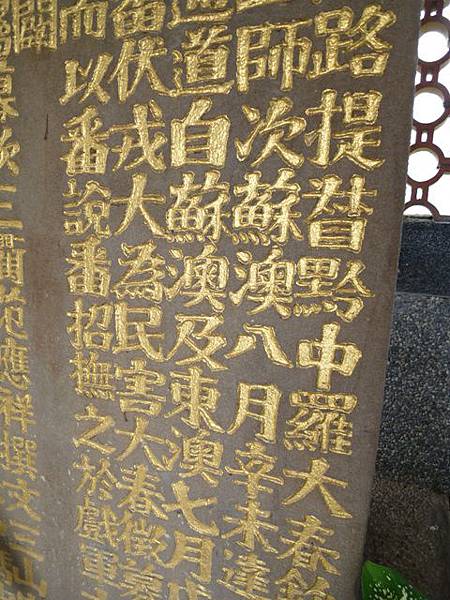 路提督黔中羅大春
師次蘇澳八月辛未達
道自蘇澳及東澳七月
留伏戎大為民害大春徵募
而以番說番招撫之於戲軍
闢
三 范應祥撰文三山